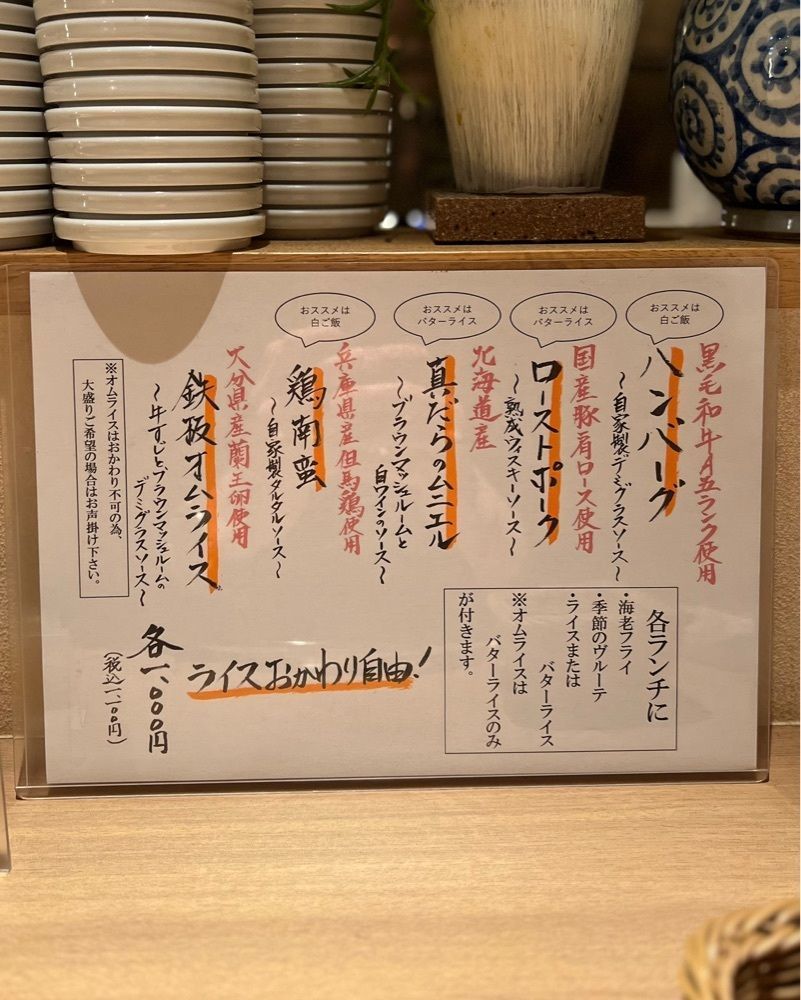 おススメは
白ご飯
黒毛和牛A五ランク使用
ハンバーグ
〜自家製デミグラスソース〜
おススメは
バターライス
国産豚肩ロース使用
ローストポーク
〜熟成ウィスキーソース〜
おススメは
バターライス
北海道産
真だらのムニエル
〜ブラウンマッシュルームと
白ワインのソース〜
おススメは
白ご飯
兵庫県産但馬鶏使用
鶏南蛮
〜自家製タルタルソース〜
大分県産蘭王卵使用
鉄板オムライス
〜牛すじとブラウンマッシュルームの
デミグラスソース〜
※オムライスはおかわり不可の為、
大盛りご希望の場合はお声掛け下さい。
各ランチに
・海老フライ
・季節のヴルーテ
・ライスまたは
バターライス
※オムライスは
バターライスのみ
が付きます。
ライスおかわり自由!
各一、〇〇〇円
(税込一、一〇〇円)